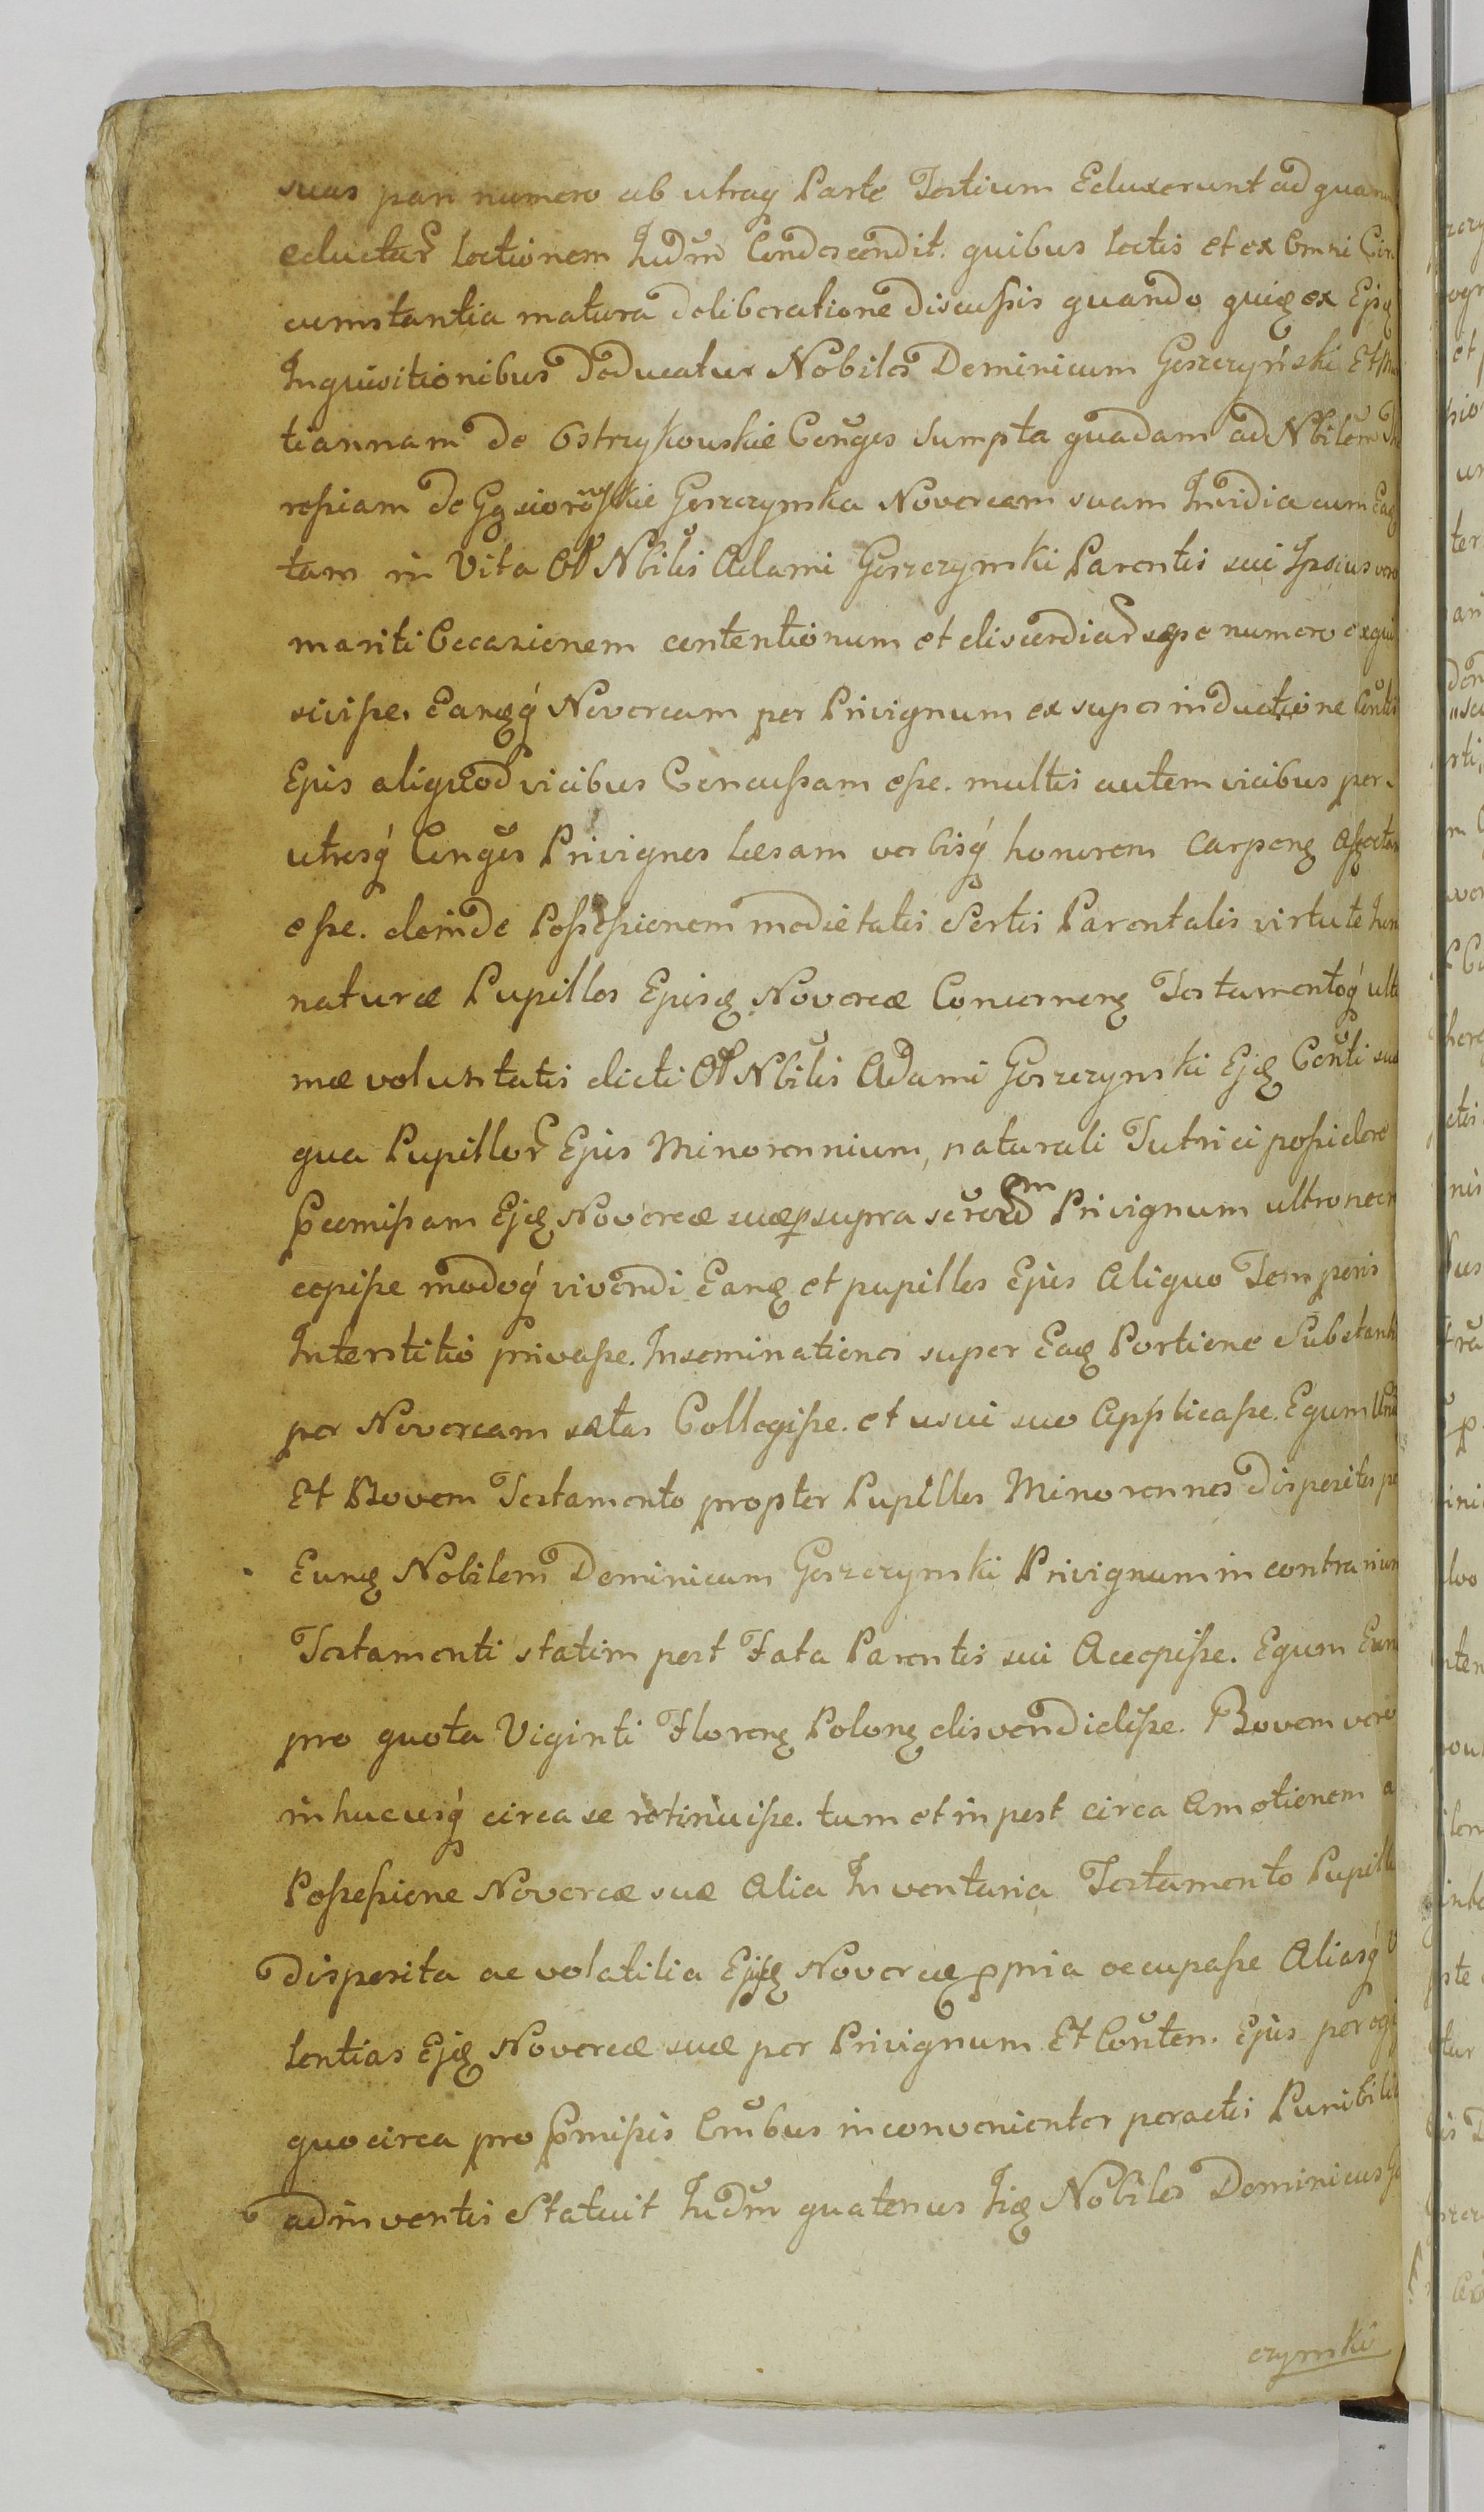 suas pari numero ab utraq Parte Testium Eduxerunt ad quar
eductar lectionem Judm Condescendit. quibus lectis et ex Omni Cir
cumstantia matura deliberatione discussis quando quidē ex Ejsq
Inquisitionibus Deducatur Nobiles Dominicum Goszczyński Et Ma
tiannam de Ostrzykowskie Conges sumpta quadam ad Nbilem
resiam de Gąsiorowskie Goszczynska Novercam suam Invidia cum Eaq
tam in Vita Ol Nbilis Adami Goszczynski Parentis sui Ipsius vero
mariti Occasionem contentionum et discordiar sæpe numero exqui
sivisse. Eamq́ Novercam per Privignum ex superinductione Contis
Ejus aliquod vicibus Concussam esse. multis autem vicibus per
utrosq́ Conges Privignos læsam verbisq́ honorem Carpenē
esse. deinde Possessionem medietatis Sortis Parentalis virtute
naturæ Pupillos Ejusē Novercæ Concernenē Testamentoq́ ulti
mæ voluntatis dicti Ol Nbilis Adami Goszczynski Ejē Conti suæ
qua Pupillor Ejus Minorennium, naturali Tutrici possidere
pcomissam Ejē Novercæ suæ p supra Privignum ultronee
cepisse modoq́ vivendi Eanē et pupillos Ejus Aliquo Temporis
Interstitio privasse. Inseminationes super Eaē Portione Substant
per Novercam satas Collegisse. et usui suo Applicasse. Equm
Et Bovem Testamento propter Pupillos Minorennes Dispositos p
Eunē Nobilem Dominicum Goszczynski Privignum in contrarium
Testamenti statim post Fata Parentis sui Accepisse. Equm Eun
pro quota Viginti Florenē Polonē disvendidisse. Bovem vero
in hucusq́ circa se retinuisse. tum et in post circa Amotionem a
Possessione Novercæ suæ Alia Inventaria Testamento Pupill
Disposita ac volatilia Ejē Novercæ ppria occupasse Aliasq́ V
lentias Ejē Novercæ suæ per Privignum Et Conten. Ejus
quocirca pro Pmissis Ombus inconvenienter peractis Punibili
adinventis Statuit Judm quatenus Jiē Nobiles Dominicus Go
czynski